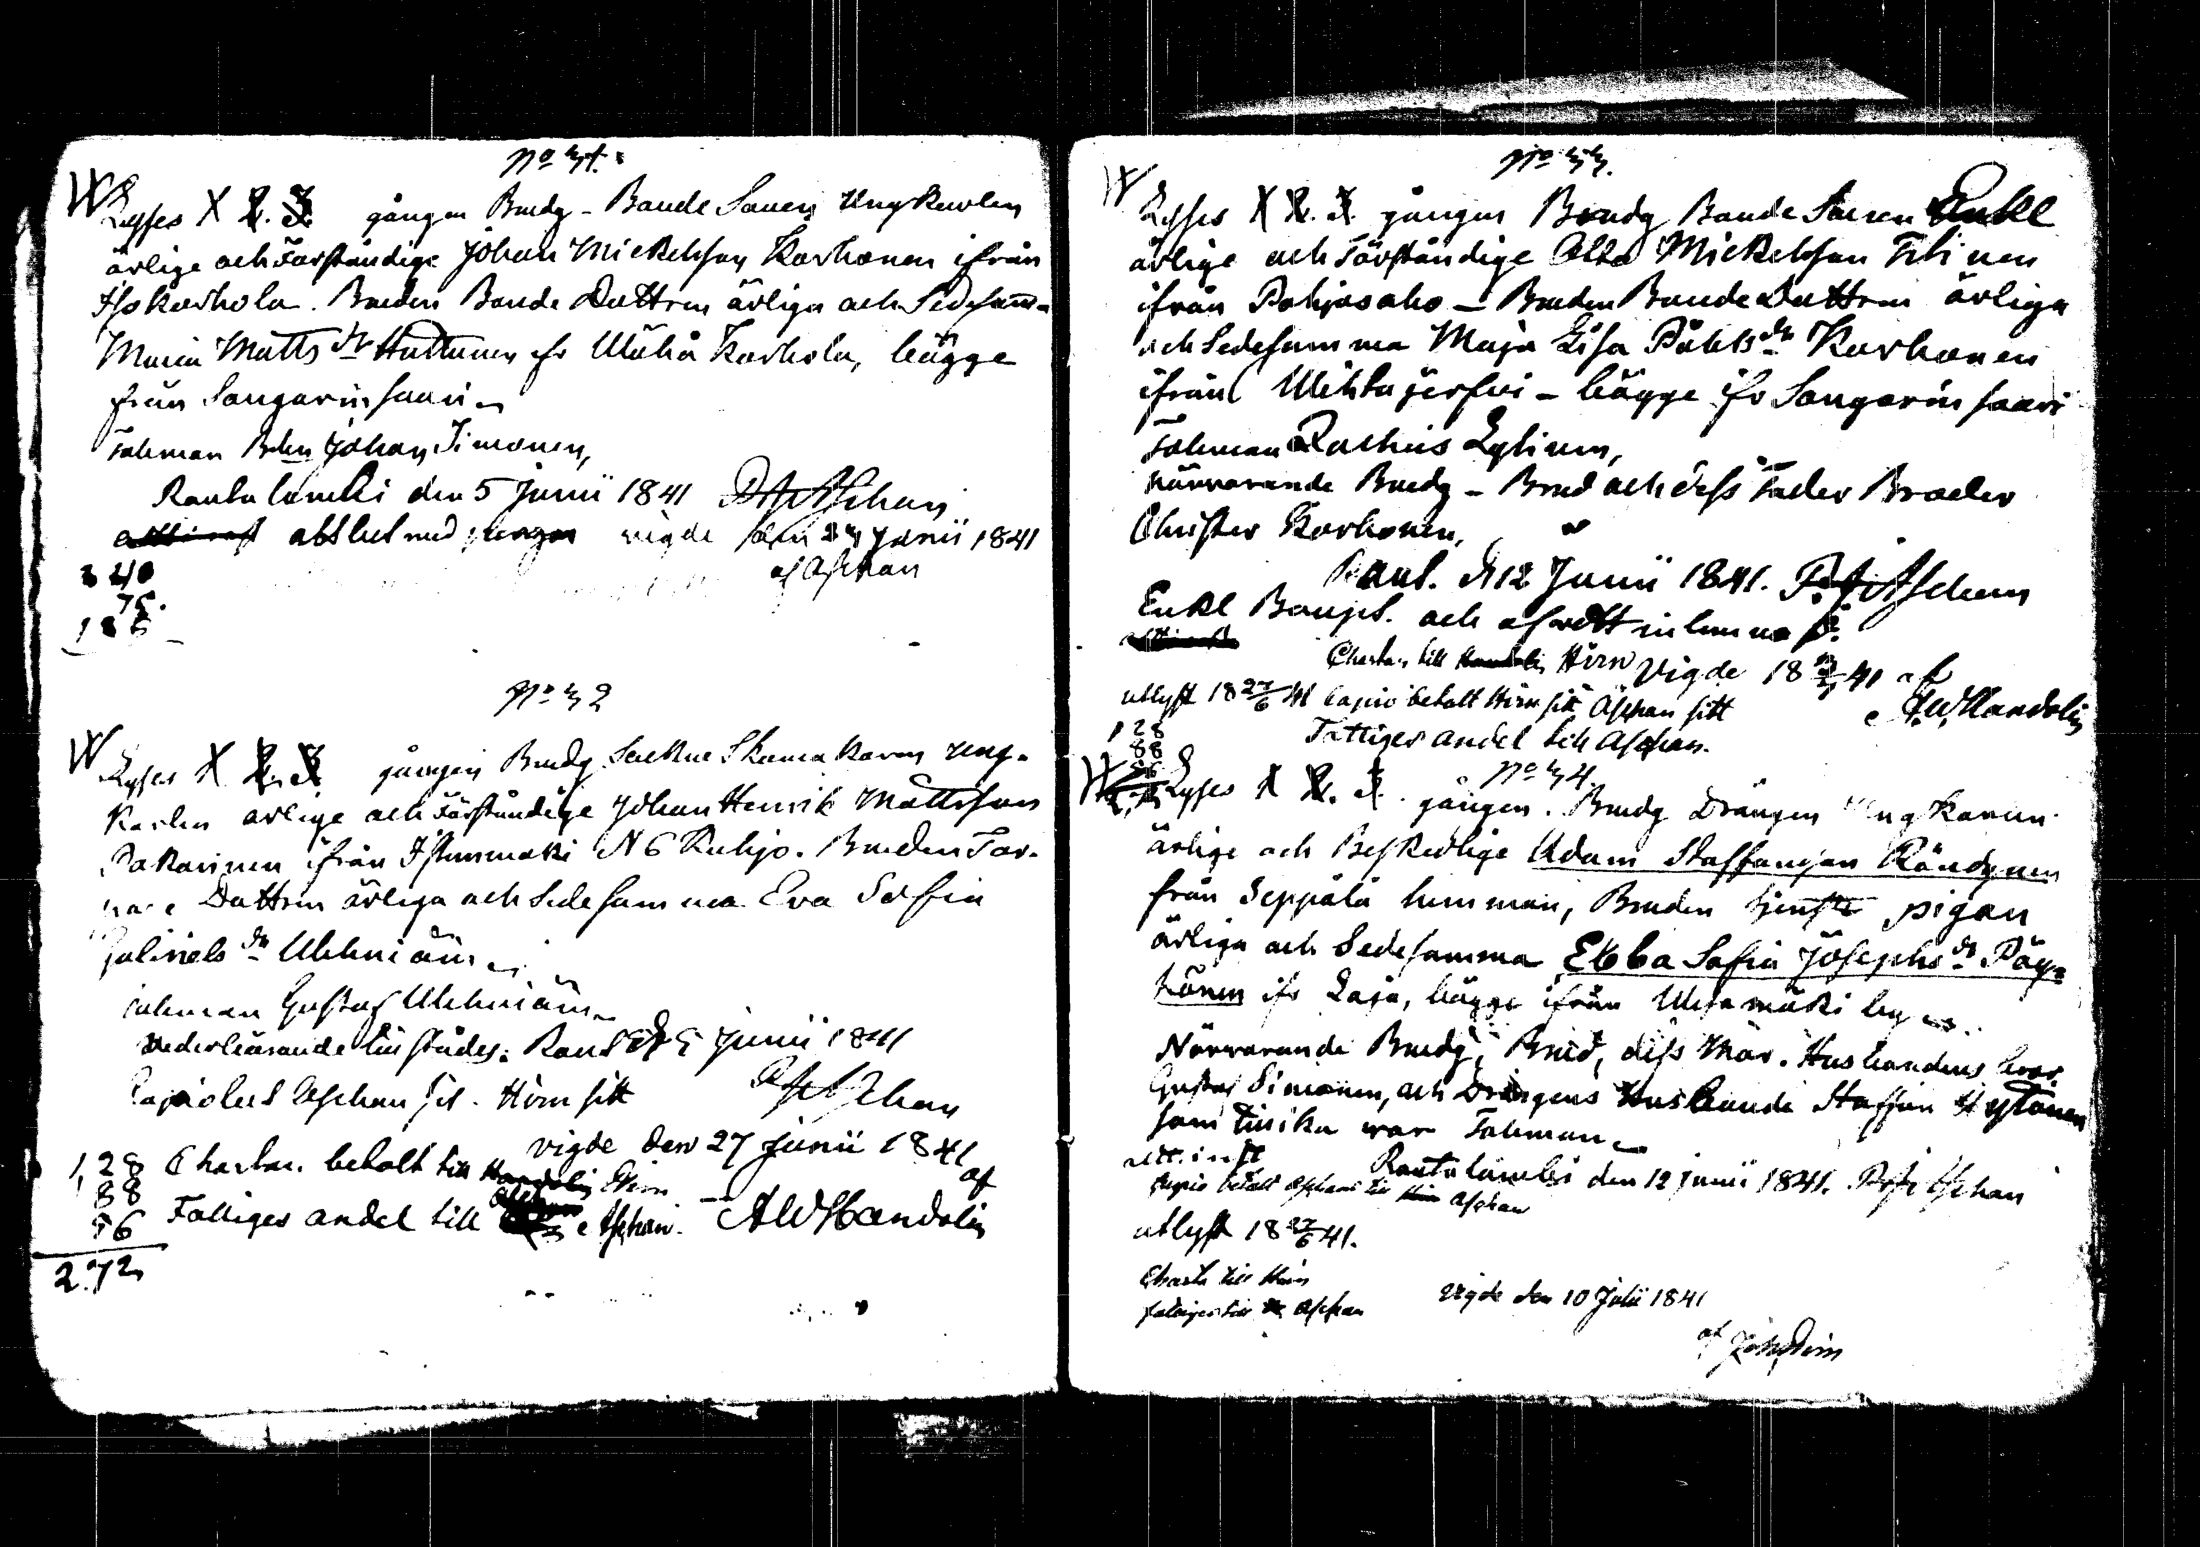 No 31.
W Lyses X 2. 3. gången Brudg - Bonde Sonen Ungkarlen
ärlige och Förståndige Johan Mickelsson Korhonen ifrån
Iso Korhola. Bruden Bonde Dottren ärliga och Sedesam-
Maria Matts dr Huttunen ifr Wähä Korhola, bägge
från Songarinsaari
Talman Johan Simonen,
Rautalambi den 5 Junii 1841
attest med vigde den 24 Junii 1841
af Aschan
240
No 32
W Lyses X 2. 3. gången Brudg Sockne Skomakaren Ung-
karlen ärlige och Förståndige Johan Henrik Mattsson
Pakarinen ifrån Istunmäki N 6 Ruhjo. Bruden Tor-
pare Dottren ärliga och Sedesamma Eva Sofia
Gabriels dr Uhlmiäin
Talman Gustaf Uhlmiäin
vederbörande tillstädes. Raut d 5 Junii 1841
Aschan
Copiol Aschan sit. Hirn sitt
vigde den 27 Junii 1841
af
1,28 Chartan betalt till Hirn
88
56 Fattiges andel till Aschan. AWHandolin
2.72
No 33.
W Lyses X 2. 3. gången Brudg Bonde Sonen Enkl
ärlige och Förståndige Otto Mickelsson
ifrån Pohjosaho - Bruden Bonde Dottren ärliga
och Sedesamma Maja Lisa Påhls dr Korhonen
ifrån Wihtajerfvi - bägge ifr Songarinsaari
Talman Zachris Lytinen,
närvarande Brudg - Brud och dess Fader Broder
Christer Korhonen,
Raut. d 12 Junii 1841. Aschan
Enkl Baupt. och afvitt inlemnas.
Chartan till Hirn vigde 18 41 af
utlyst 18 27/6 41 Copio betalt Hirn sitt Aschan sitt
AWHandolin
128
88
Fattiges andel till Aschan.
No 34.
W Lyses X 2. 3. gången. Brudg Drängen Ungkarlen
ärlige och Beskedlige Adam Staffansson Röndynen
från Seppälä hemman, Bruden pigan
ärliga och Sedesamma Ebba Sofia Josephs dr Pöy-
hönen ifr Laja, bägge ifrån Wesamäki by
Närvarande Brudg, Brud, dess Mor. Husbondens bror
Gustaf Simonen, och Drängens Husbonde Staffan Hytönen
som tillika war Talman
att. inst
Rautalambi den 12 Junii 1841. Aschan
Copio betalt Aschan
utlyst 18 27/6 41.
Charta till Hirn
fattiges till Aschan
vigde den 10 Julii 1841
af